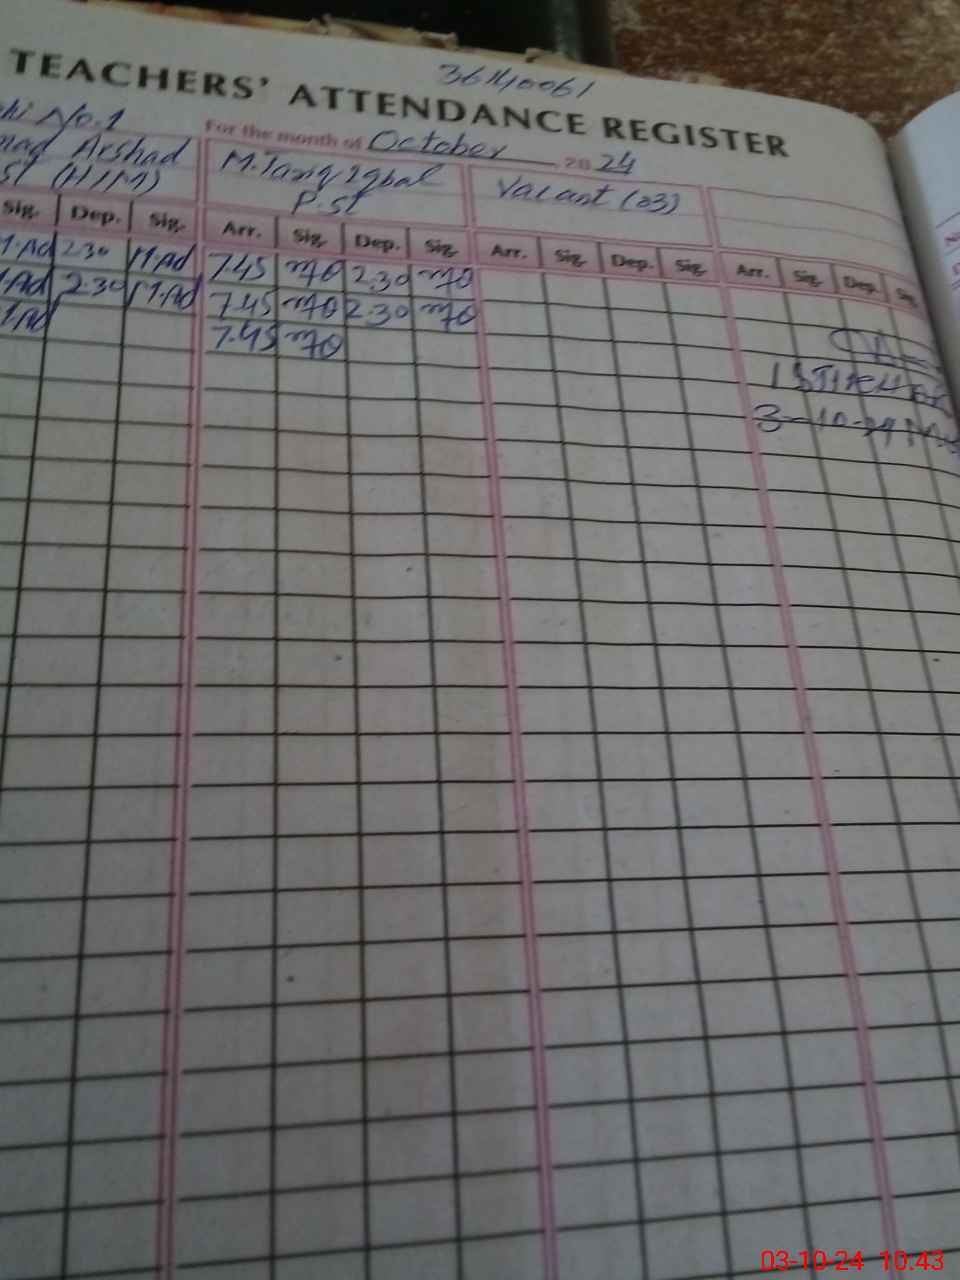 36140061
TEACHERS' ATTENDANCE REGISTER
No.1
For the month of October 2024
Arshad
(H/M)
M.Tariq Iqbal
P.st
Vacant (03)
Sig. Dep. Sig. Arr. Sig. Dep. Sig. Arr. Sig. Dep. Sig. Arr. Sig. Dep. Sig.
2.30 M.Ad 7.45 2.30
2.30 M.Ad 7.45 2.30
7.45
3-10-24
03-10-24 10.43